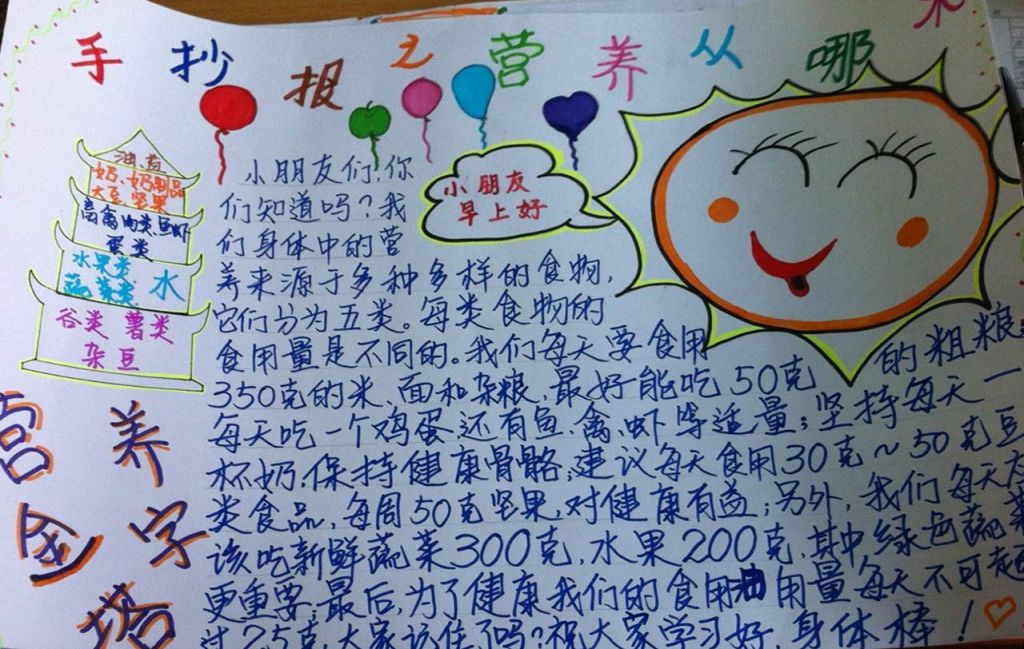 手抄报之营养从哪来
油
奶、奶制品
大豆、坚果
畜禽肉类、鱼虾
蛋类
水果类
蔬菜类 水
谷类 薯类
杂豆
营养
金字
塔
小朋友
早上好
小朋友们!你
们知道吗?我
们身体中的营
养来源于多种多样的食物,
它们分为五类。每类食物的
食用量是不同的。我们每天要食用
350克的米、面和杂粮,最好能吃50克 的粗粮;
每天吃一个鸡蛋,还有鱼、禽、虾等适量;坚持每天一
杯奶,保持健康骨骼;建议每天食用30克~50克豆
类食品,每周50克坚果,对健康有益;另外,我们每天应
该吃新鲜蔬菜300克,水果200克,其中,绿色蔬菜
更重要;最后,为了健康我们的食用油用量每天不可超
过25克,大家记住了吗?祝大家学习好,身体棒!